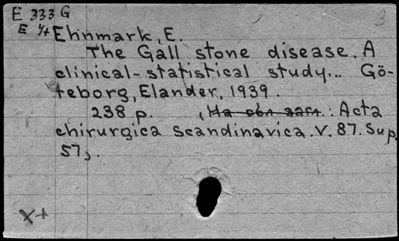 E 333 G
3
E 4/4 Ehnmark, E.
The Gall stone disease. A
clinical-statistical study... Gö-
teborg, Elander, 1939.
238 p. (На обл загл.: Acta
chirurgica scandinavica. V. 87. Sup.
57).
X+